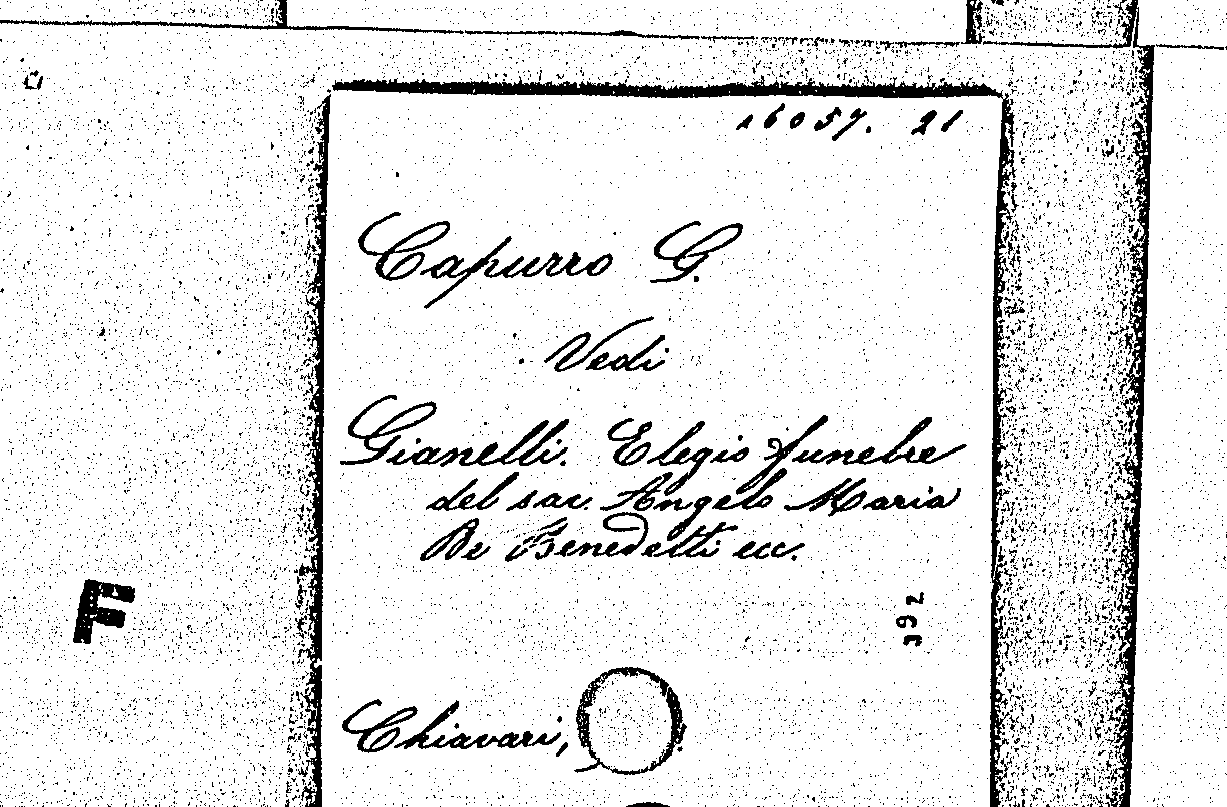 16057. 21
Capurro G.
Vedi
Gianelli. Elogio funebre
del sac. Angelo Maria
De Benedetti ecc.
392
F
Chiavari,